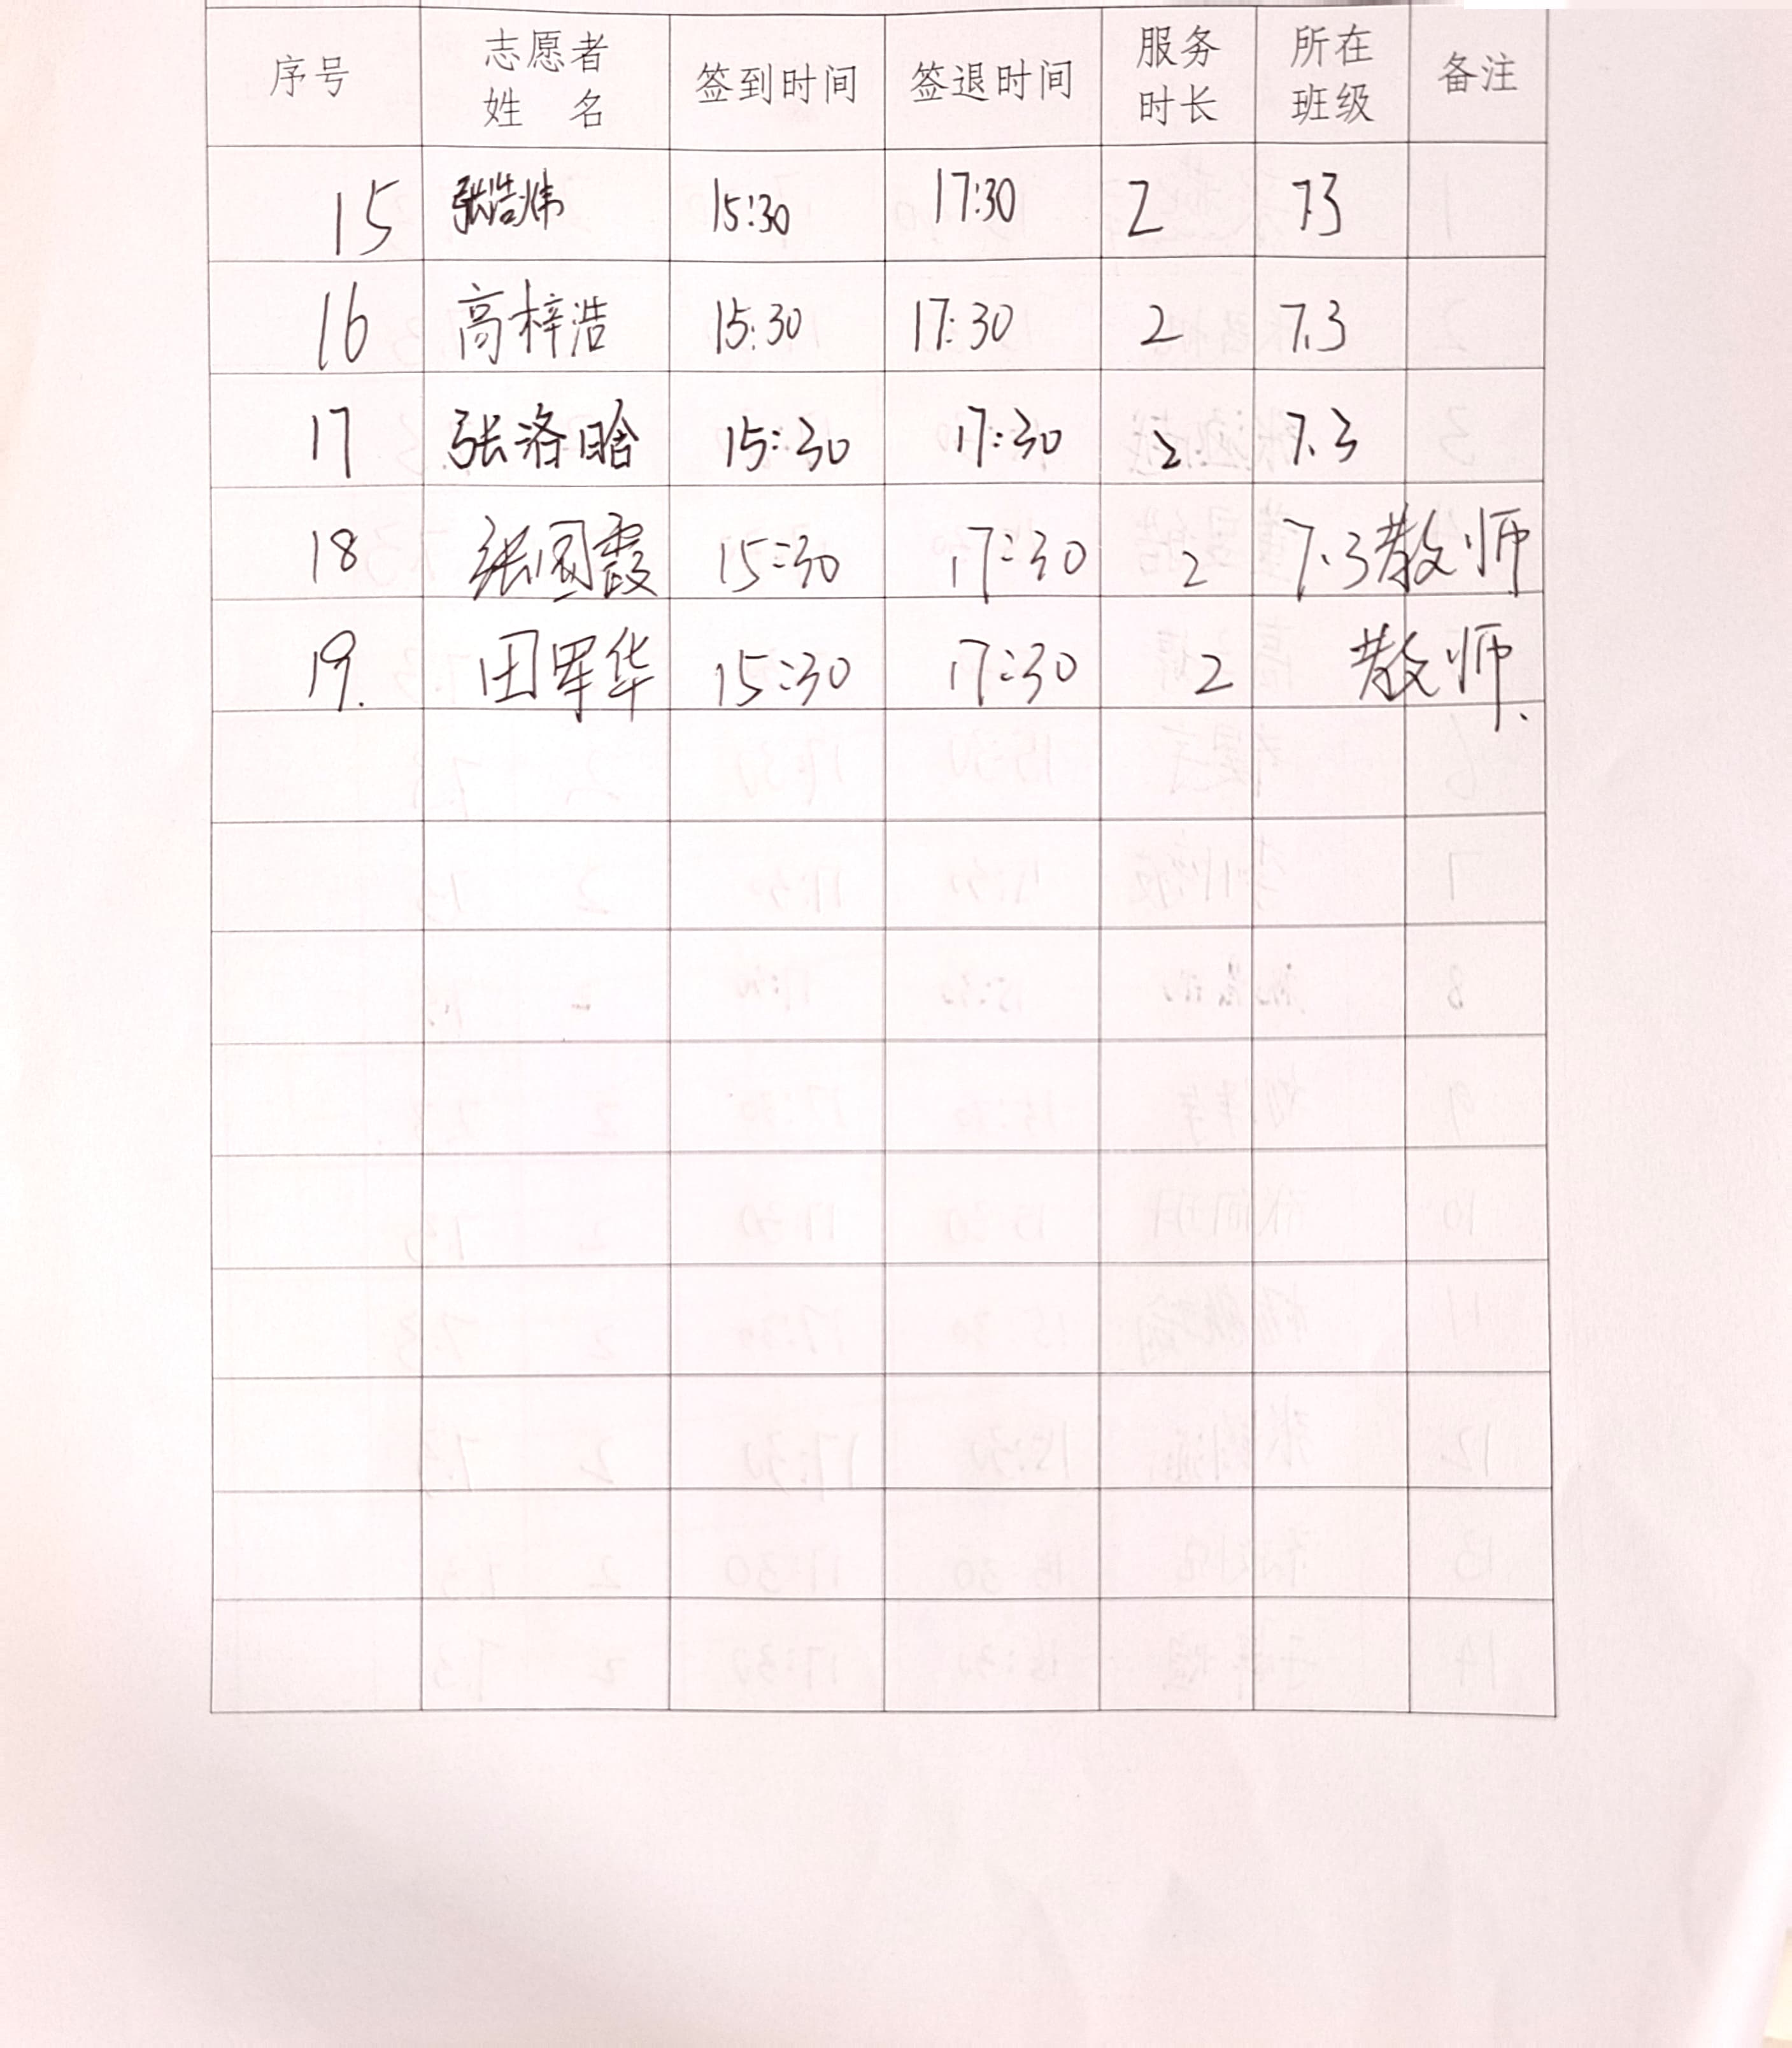 序号 志愿者姓 名 签到时间 签退时间 服务时长 所在班级 备注
15 张浩炜 15:30 17:30 2 7.3
16 高梓浩 15:30 17:30 2 7.3
17 张洛晗 15:30 17:30 2 7.3
18 张国霞 15:30 17:30 2 7.3 教师
19. 田军华 15:30 17:30 2 教师.